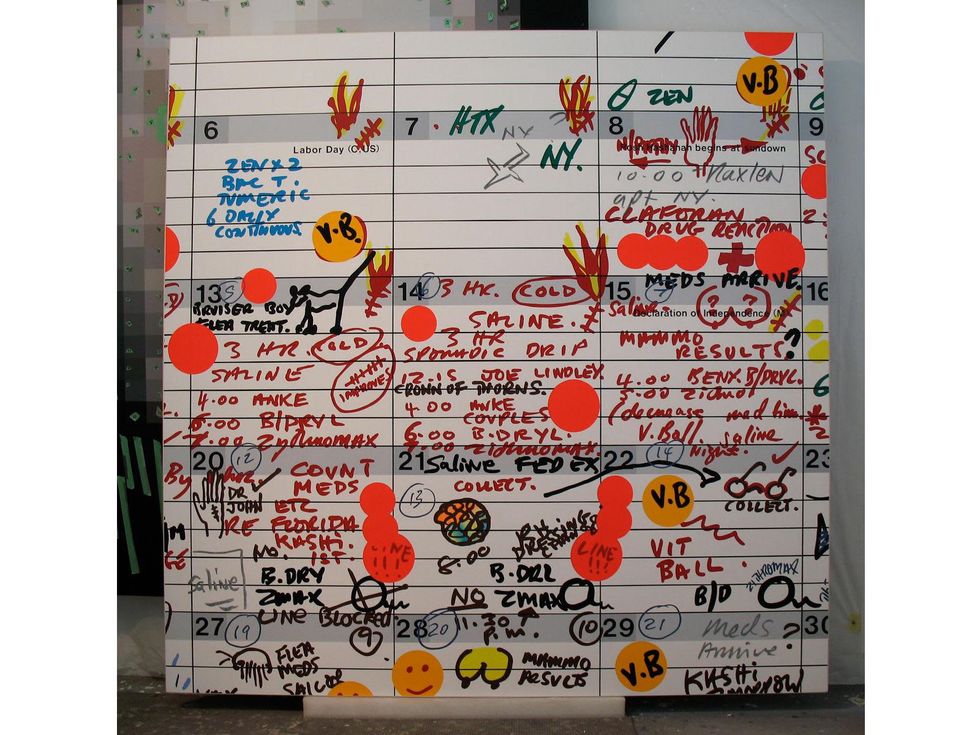 V.B
ZEN
6
7
HTX
8
9
NY
Labor Day (C,US)
NY.
Rosh Hashanah begins at sundown
ZEN X 2
10.00
BAC T.
apt NY.
TUMERIC
CLAFORAN
6 DAILY
DRUG REACTION
CONTINUOUS
V.B.
MEDS ARRIVE.
13
14
3 HR. COLD
15
16
Saline
BRUISER BOY
FLEA TREAT.
SALINE.
Declaration of Independence (M
3 HR. COLD
3 HR
MAMMO
SPORADIC DRIP
RESULTS?
SALINE
IMPROVES
12.15 JOE LINDLEY
4.00 BENX.B/DRYL.
CROWN OF THORNS.
4.00 ANKE
4.00 ANKE
5.00
COUPLES
(decrease med tim.
6.00 B/DRYL
6.00 B.DRYL.
V.Ball. saline
7.00
7.00
night.
20
12
21
Saline FEDEX
22
14
23
By
COUNT
COLLECT.
MEDS
13
V.B
COLLECT.
DR
JOHN
ETC
RE FLORIDA
KASHI.
LINE
!!!
LINE
!!!
VIT
MO. 1ST.
8.00
BALL.
Saline
B.DRY
B.DRL
ZITHROMAX
ZMAX
NO ZMAX
B/D
LINE BLOCKED
27
19
9
28
20
11.30
P.M.
10
29
21
Meds
?
30
Arrive
FLEA
MEDS
MAMMO
RESULTS
V.B
KASHI
SALINE
TOMORROW